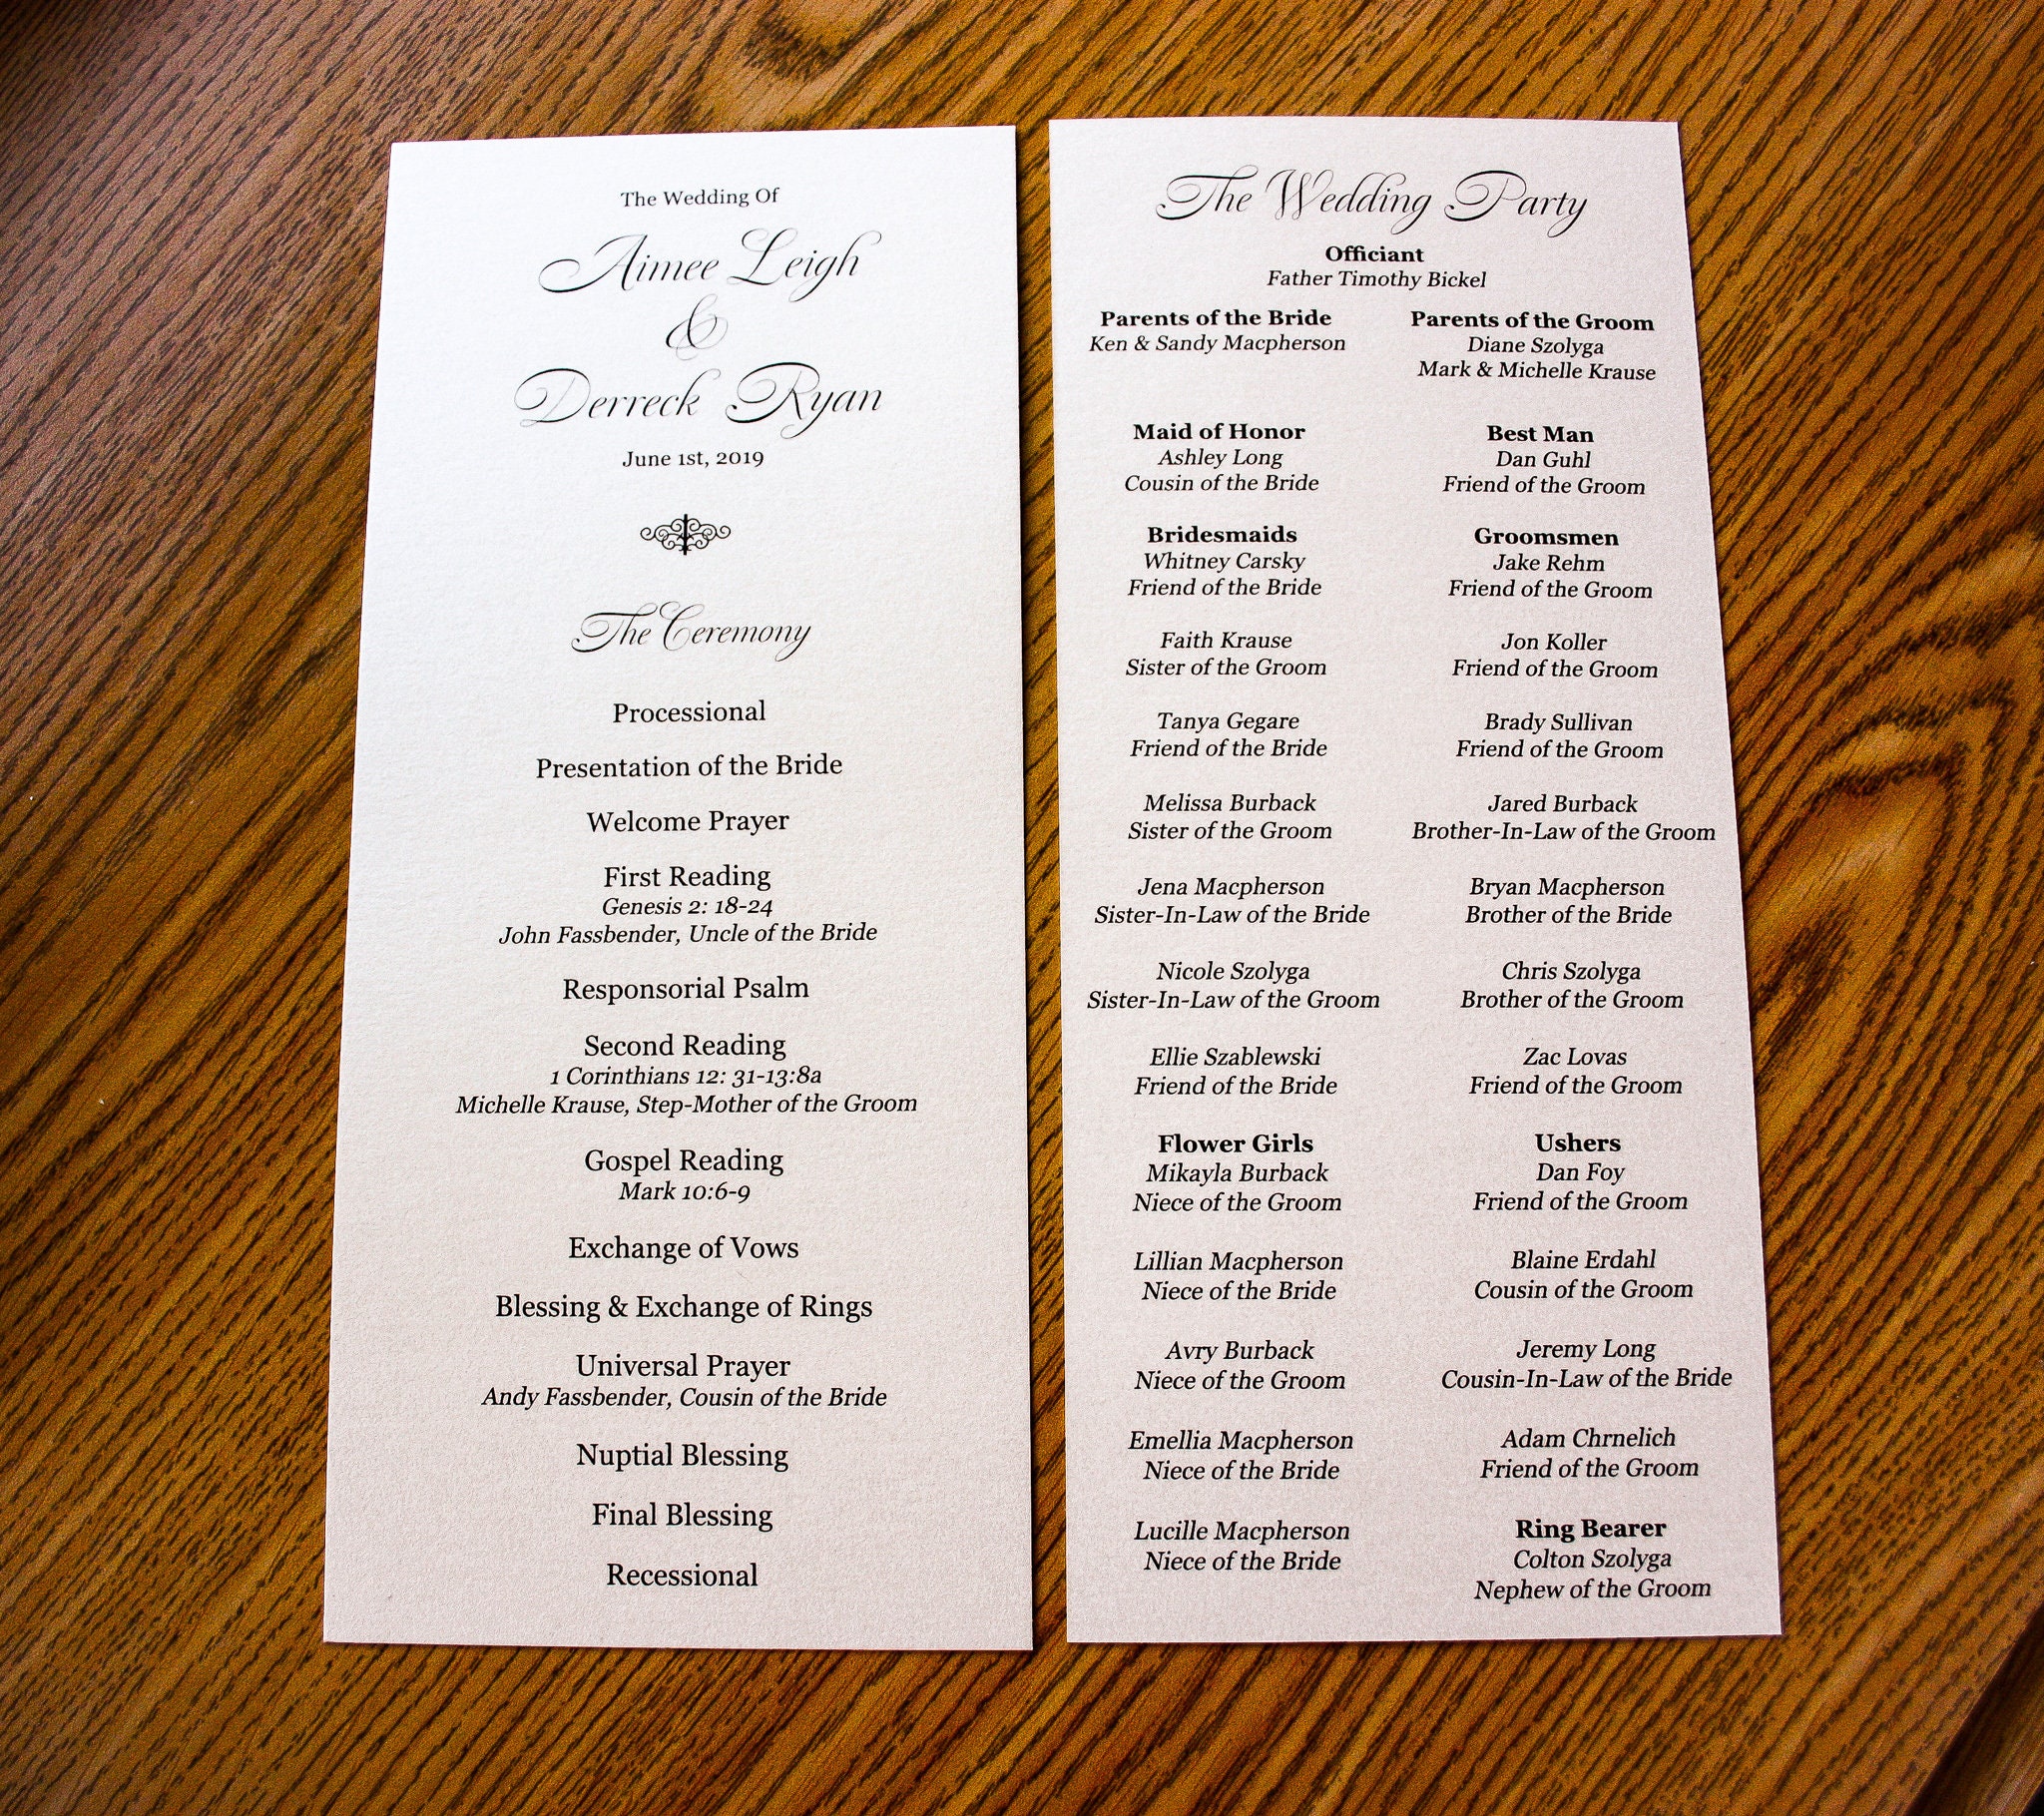 The Wedding Of
Aimee Leigh
&
Derreck Ryan
June 1st, 2019
The Ceremony
Processional
Presentation of the Bride
Welcome Prayer
First Reading
Genesis 2: 18-24
John Fassbender, Uncle of the Bride
Responsorial Psalm
Second Reading
1 Corinthians 12: 31-13:8a
Michelle Krause, Step-Mother of the Groom
Gospel Reading
Mark 10:6-9
Exchange of Vows
Blessing & Exchange of Rings
Universal Prayer
Andy Fassbender, Cousin of the Bride
Nuptial Blessing
Final Blessing
Recessional
The Wedding Party
Officiant
Father Timothy Bickel
Parents of the Bride
Ken & Sandy Macpherson
Parents of the Groom
Diane Szolyga
Mark & Michelle Krause
Maid of Honor
Ashley Long
Cousin of the Bride
Best Man
Dan Guhl
Friend of the Groom
Bridesmaids
Whitney Carsky
Friend of the Bride
Faith Krause
Sister of the Groom
Tanya Gegare
Friend of the Bride
Melissa Burback
Sister of the Groom
Jena Macpherson
Sister-In-Law of the Bride
Nicole Szolyga
Sister-In-Law of the Groom
Ellie Szablewski
Friend of the Bride
Groomsmen
Jake Rehm
Friend of the Groom
Jon Koller
Friend of the Groom
Brady Sullivan
Friend of the Groom
Jared Burback
Brother-In-Law of the Groom
Bryan Macpherson
Brother of the Bride
Chris Szolyga
Brother of the Groom
Zac Lovas
Friend of the Groom
Flower Girls
Mikayla Burback
Niece of the Groom
Lillian Macpherson
Niece of the Bride
Avry Burback
Niece of the Groom
Emellia Macpherson
Niece of the Bride
Lucille Macpherson
Niece of the Bride
Ushers
Dan Foy
Friend of the Groom
Blaine Erdahl
Cousin of the Groom
Jeremy Long
Cousin-In-Law of the Bride
Adam Chrnelich
Friend of the Groom
Ring Bearer
Colton Szolyga
Nephew of the Groom